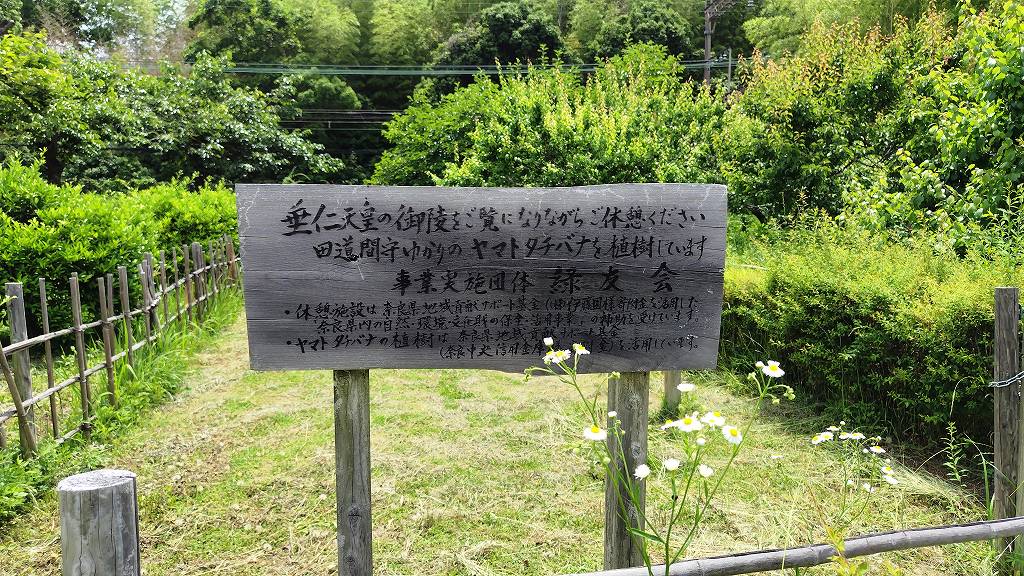 垂仁天皇の御陵をご覧になりながらご休憩ください
田道間守ゆかりのヤマトタチバナを植樹しています
事業実施団体 緑友会
・休憩施設は奈良県地域貢献サポート基金((株)伊藤園様寄付)を活用した
奈良県内の自然・環境・文化財の保全・活用事業への補助を受けています。
・ヤマトタチバナの植樹は、奈良県地域貢献サポート基金
(奈良中央信用金庫 を活用しています。